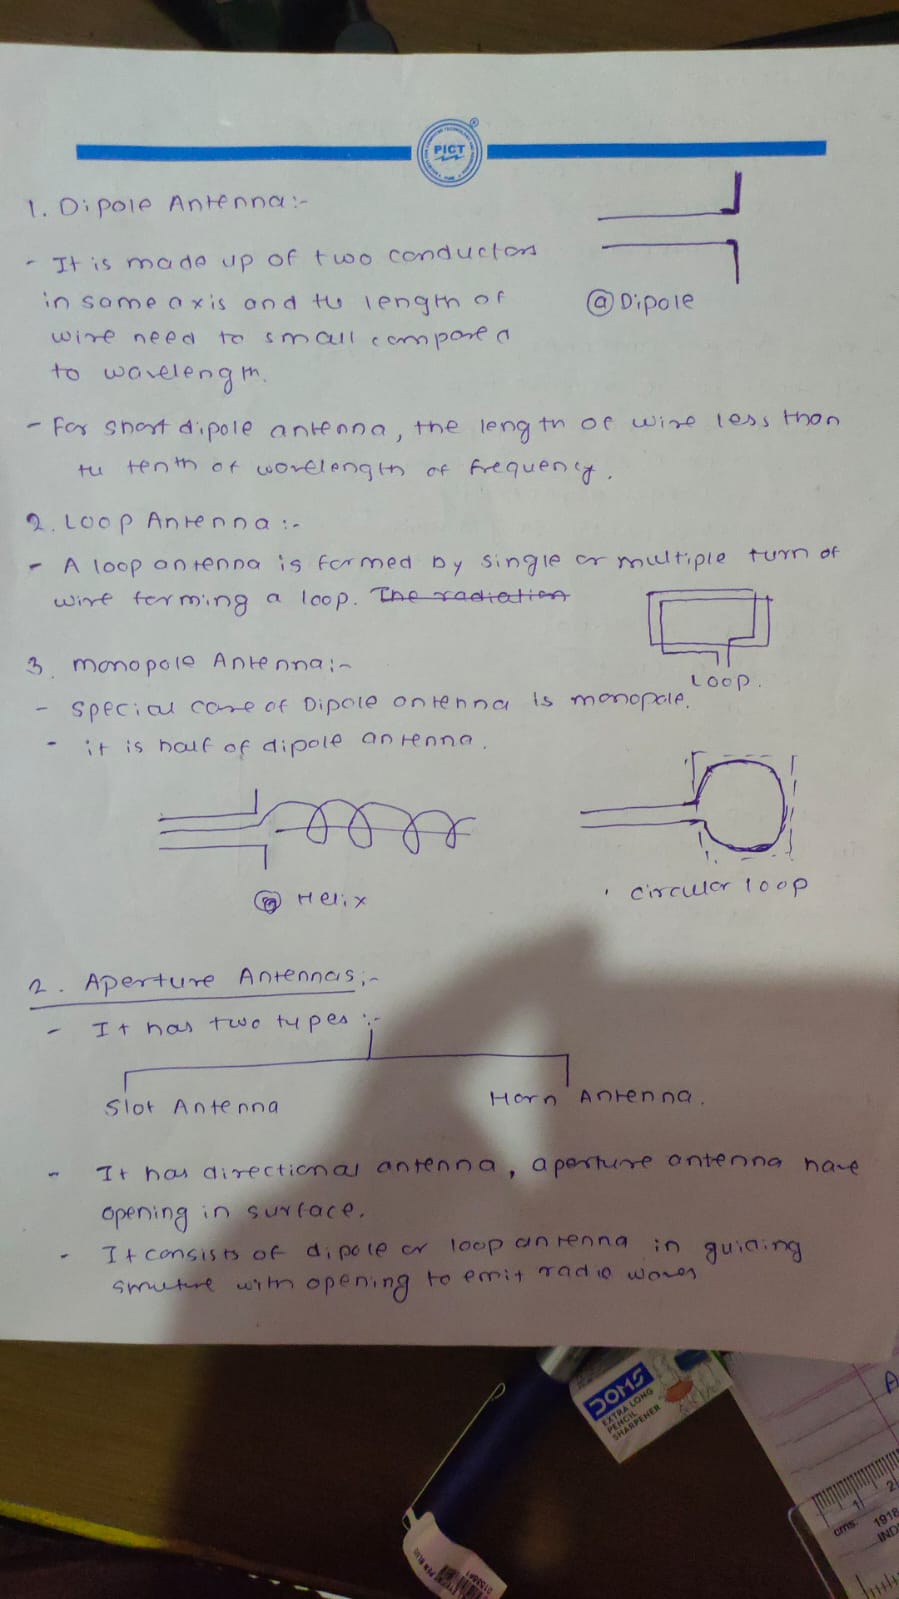 PICT
1. Dipole Antenna:-
- It is made up of two conductors
in same axis and the length of
wire need to small compared
to wavelength.
@ Dipole
- For short dipole antenna, the length of wire less than
the tenth of wavelength of frequency.
2. Loop Antenna :-
- A loop antenna is formed by single or multiple turn of
wire forming a loop. The radiation
Loop.
3. Monopole Antenna:-
- Special case of Dipole antenna is monopole.
- it is half of dipole antenna.
Helix
circular loop
2. Aperture Antennas:-
- It has two types :-
Slot Antenna
Horn Antenna.
- It has directional antenna, aperture antenna have
opening in surface.
- It consists of dipole or loop antenna in guiding
with opening to emit radio waves
DOMS
EXTRA LONG
PENCIL
SHARPENER
A
1 2
cms. 1918